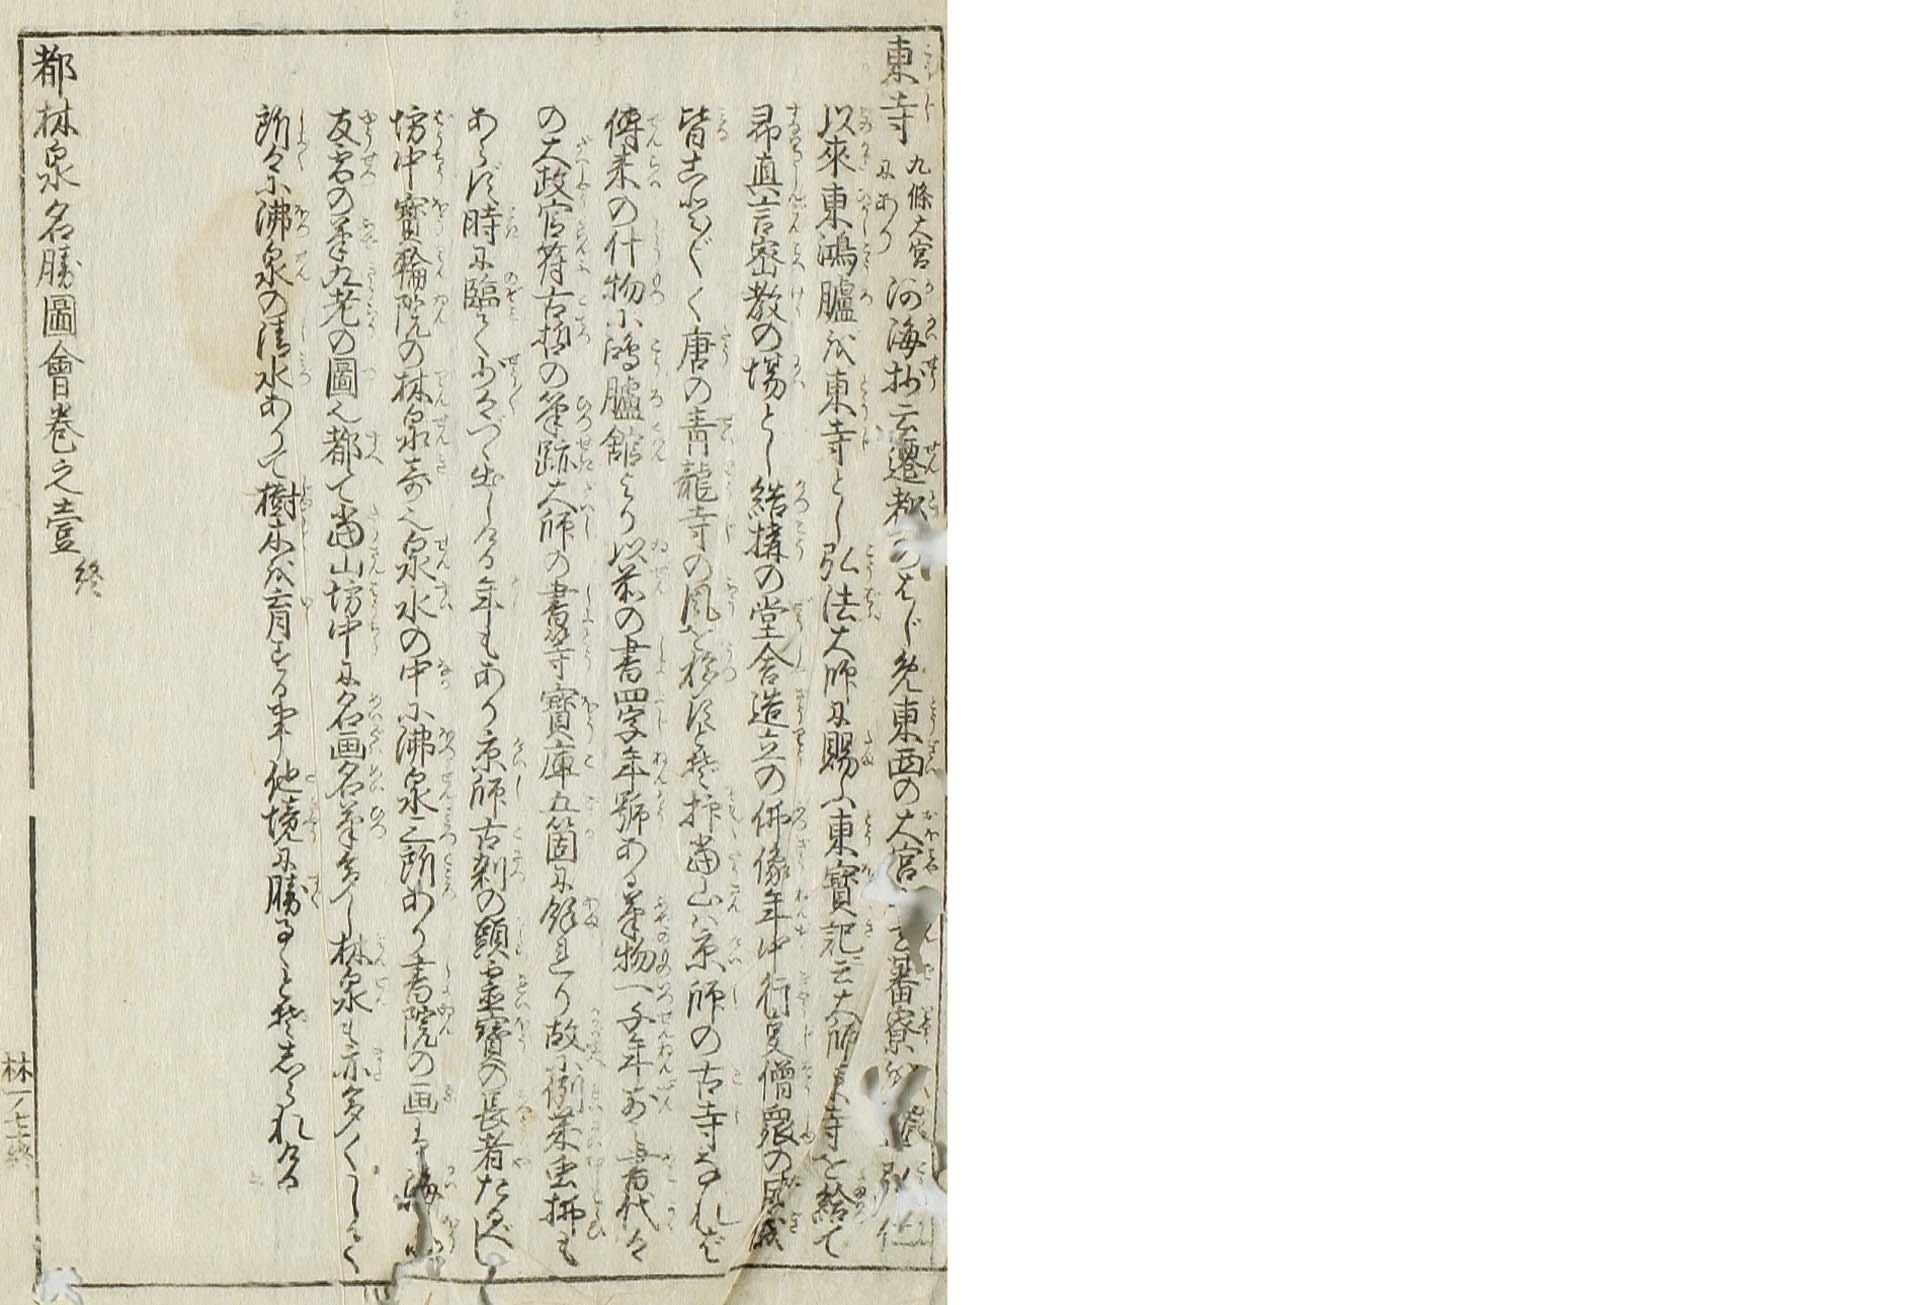 東寺 九條大宮にあり 河海抄云遷都のはじめ東西の大宮 蕃寮 弘仁
以來東鴻臚を東寺とし弘法大師に賜ふ東寶記云大師東寺を給て
専真言密教の場とし結構の堂舎造立の佛像年中行夏僧衆の威儀
皆ことごとく唐の青龍寺の風を移すとぞ抑當山ハ京師の古寺なれば
傳来の什物に鴻臚舘より以前の書四字年號ある筆物一千年前書代々
の大政官符古哲の筆跡大師の書等寶庫五箇に餘れり故に例年虫拂も
あらず時に臨て少々づゝ出しける年もあり京師古刹の頭霊寶の長者たるべし
坊中寶輪院の林泉奇也泉水の中に沸泉二所あり書院の画は海
友雪の筆九老の圖也都て當山坊中に名画名筆多し林泉も亦多くうしろく
所々に沸泉の清水ありて樹木を育する事他境に勝るゝとぞしられける
都林泉名勝圖會巻之壹終
林一ノ七十終